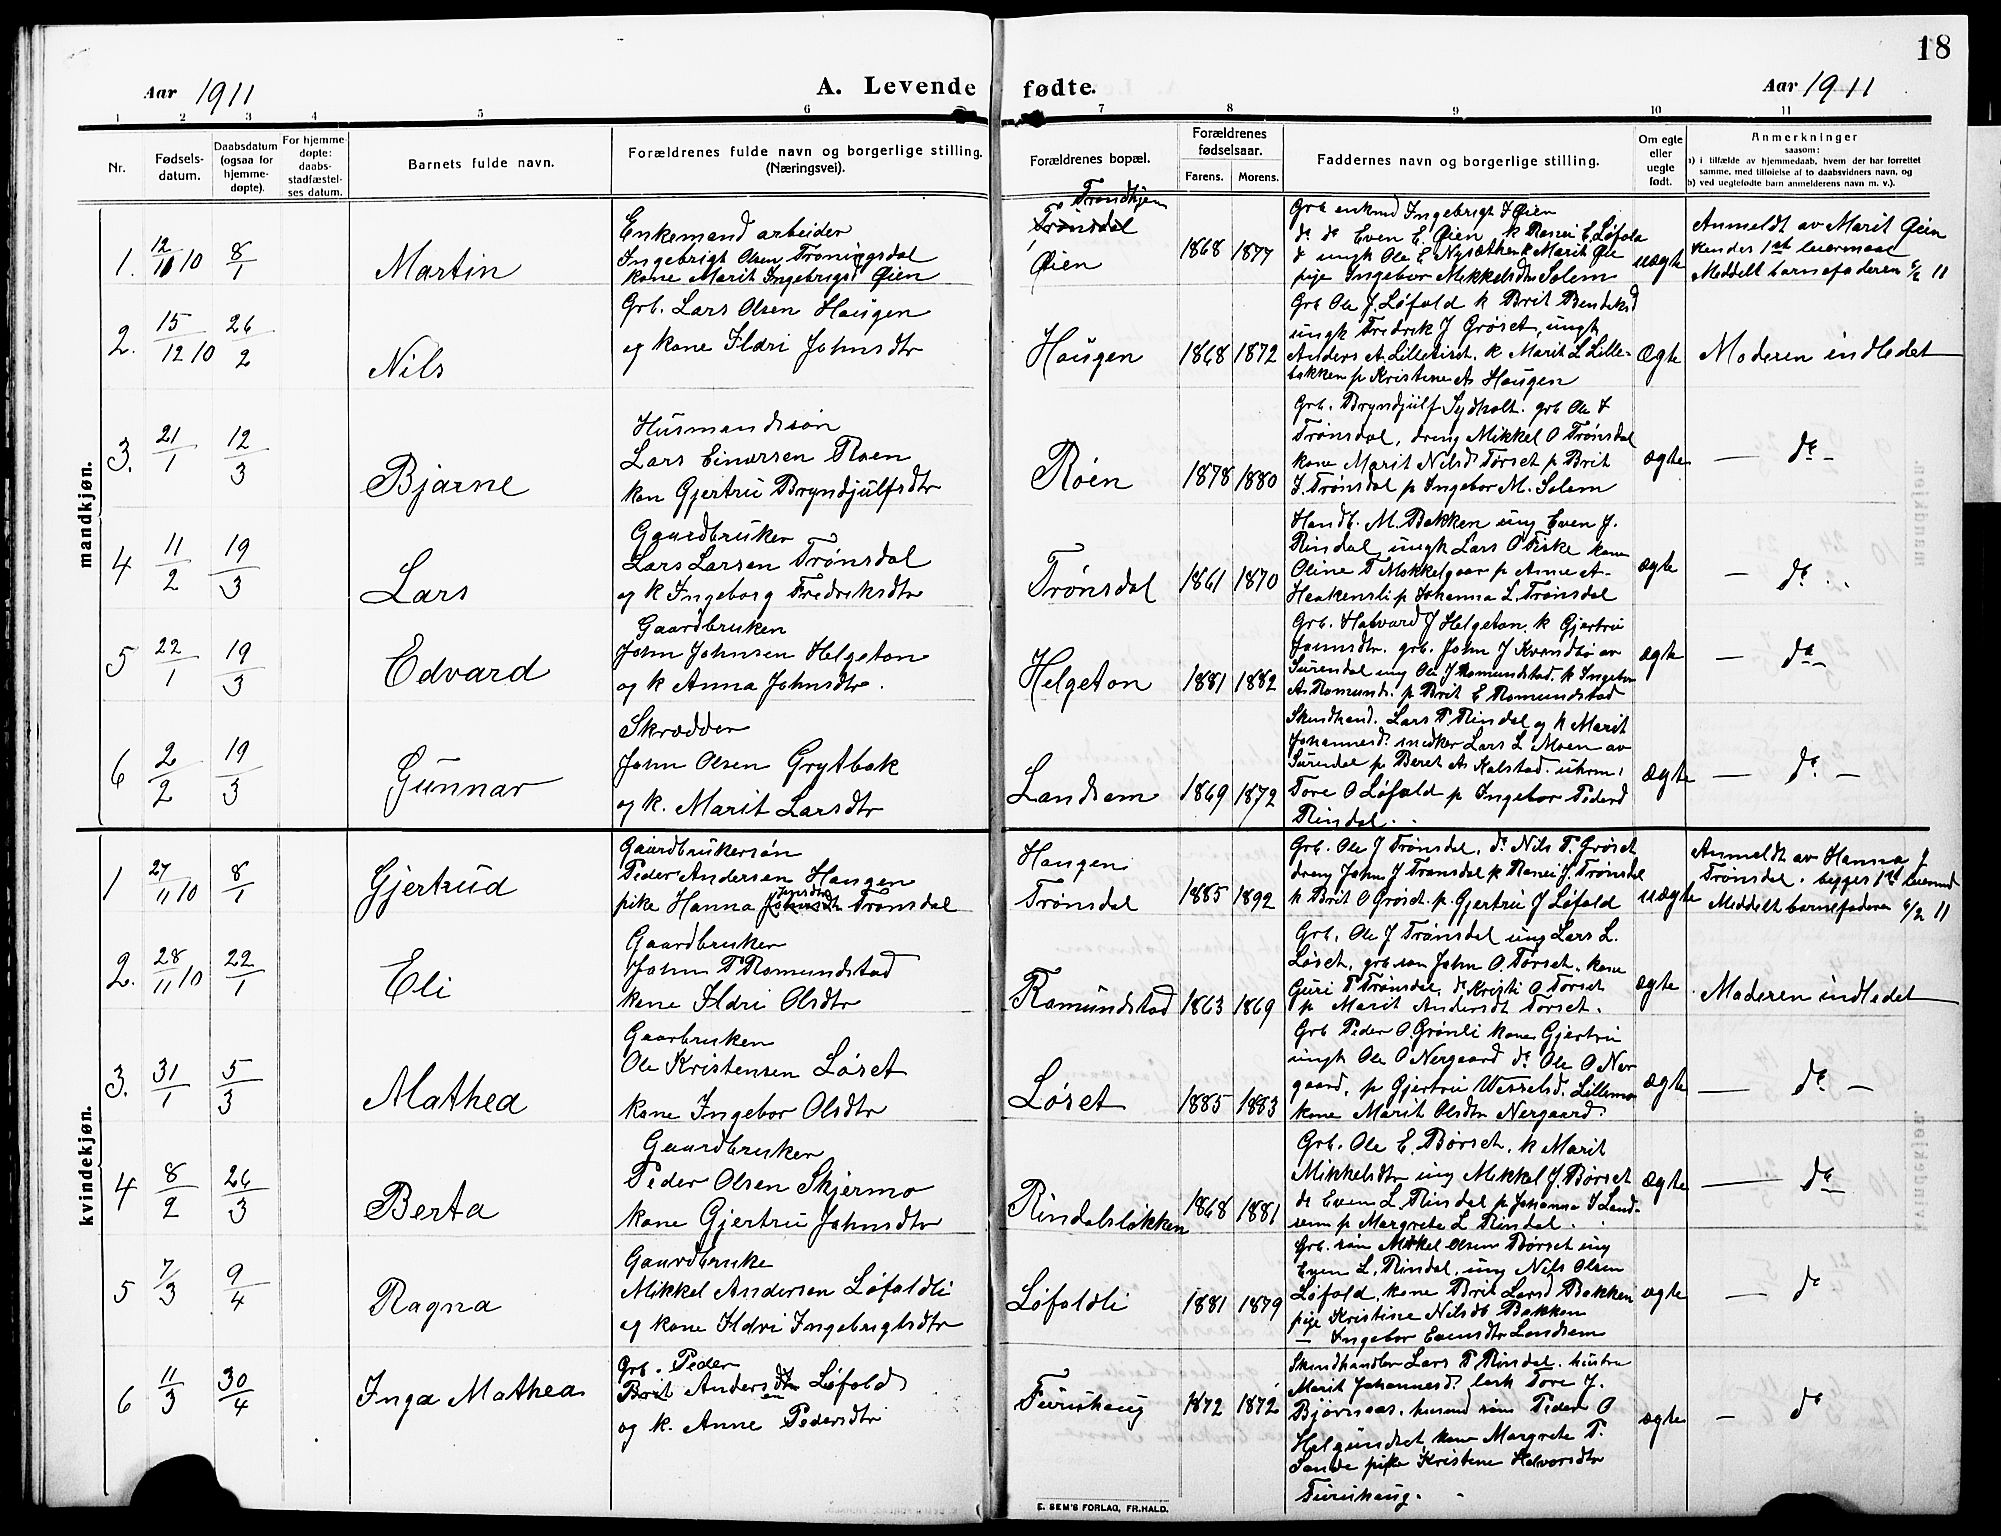 18
Aar 1911
A. Levende fødte.
Aar 1911
1 2 3 4 5 6 7 8 9 10 11
Nr.
Fødsels-
datum.
Daabsdatum
(ogsaa for
hjemme-
døpte).
For hjemme-
døpte:
daabs-
stadfæstel-
ses datum.
Barnets fulde navn.
Forældrenes fulde navn og borgerlige stilling.
(Næringsvei).
Forældrenes bopæl.
Forældrenes
fødselsaar.
Farens. Morens.
Faddernes navn og borgerlige stilling.
Om egte
eller
uegte
født.
Anmerkninger
saasom:
a) i tilfælde av hjemmedaab, hvem der har forrettet
samme, med tilføielse af to daabsvidners navn, og
b) ved uegtefødte barn anmelderens navn m. v.).
mandkjøn.
1. 12/11 10 8/1 Martin
Enkemand arbeider
Ingebrigt Olsen Trøningsdal
kone Marit Ingebrigt Øien
Trondhjem
Trønsdal
Øien
1868 1877
Grb enkmd Ingebrigt I Øien
do do Even E. Øien k Ranei E. Løfald
pige Ingebor Mikkelsdtr Solem
uægte
Anmeldt av Marit Øien
Meddelt barnefaderen 6/2 11
2. 15/12 10 26/2 Nils
Grb. Lars Olsen Haugen
og kone Ildri Johnsdtr
Haugen 1868 1872
Grb Ole J. Løfald k Brit Bendiksd
ungk Fredrik J Grøset, ungk
Anders A. Lilleset. k Marit L Lille-
bakken p Kristine As Haugen
Ægte
Moderen indledet
3. 21/1 12/3 Bjarne
Husmandssøn
Lars Einersen Roen
kon Gjertru Bryndjulfsdtr
Røen 1878 1880
Grb. Bryndjulf Sydhalt. grb Ole I
Trønsdal, dreng Mikkel O Trønsdal
kone Marit Nilsd Tørset p Brit
J. Trønsdal p Ingebor M. Solem
ægte
— do —
4 11/2 19/3 Lars
Gaardbruker
Lars Larsen Trønsdal
og k Ingeborg Fredriksdtr
Trønsdal 1861 1870
Handb. M. Bakken ung Even J.
Rindal, ungk Lars O Fiske kone
Oline T Mokkelgaar p Anne A-
Haakensli p Johanna L. Trønsdal
ægte
— do
5 22/1 19/3 Edvard
Gaardbruken
John Johnsen Helgeton
og k Anna Johnsdtr.
Helgeton 1881 1882
Grb. Halvard J Helgeton. k Gjertru
Surendal ung Ole J Romundstad. k Ingebor
As Romunds. p Brit E Romundstad
ægte
— do —
6 2/2 19/3 Gunnar
Skrædder
John Olsen Grytbak
og k. Marit Larsdtr
Landsem 1869 1872
Skindhand. Lars P. Rindal og k Marit
Johannesd. snedker Lars L Moen av
Surendal p Beret As Kalstad.
Tore O Løfald p Ingebor Pedersd
Rindal.
Ægte
— do —
kvindekjøn.
1 27/11 10 8/1 Gjertrud
Gaardbrukersøn
Peder Andersen Haugen
Jonsdtr
pike Hanna Johnsdtr Trønsdal
Haugen
Trønsdal
1885 1892
Grb. Ole J Trønsdal, do Nils P. Grøset
dreng John J Trønsdal p Ranei J. Trønsdal
k Brit O Grøset. p. Gjertru J Løfald
uægte
Anmeldt av Hanna J
Trønsdal.
Meddelt barnefaderen 6/2 11
2. 28/11 10 22/1 Eli
Gaardbruker
John P Romundstad
kone Ildri Olsdtr
Romundstad 1863 1869
Grb. Ole J Trønsdal ung Lars L.
Løset, grb søn John O. Tørset. kone
Guri P Trønsdal, do Kristi O Torset
p Marit Andersdt Torset.
ægte
Moderen indledet
3. 31/1 5/3 Mathea
Gaarbruken
Ole Kristensen Løset
kone Ingebor Olsdtr
Løset 1885 1883
Grb Peder O. Grønli kone Gjertru
ungk Ole O Nergaard do Ole O Ner
gaard. p Gjertru Wesselsd. Lillemo
kone Marit Olsdtr Nergaard.
Ægte
— do —
4 8/2 26/3 Berta
Gaardbruker
Peder Olsen Skjermo
kone Gjertru Johnsdtr
Rindalsløkken 1868 1881
Grb. Ole E. Børset. k Marit
Mikkelsdtr ung Mikkel J. Børset
do Even L. Rindal p Johanna I Land-
sem p Margrete L Rindal.
ægte
— do
5 7/3 9/4 Ragna
Gaardbruke
Mikkel Andersen Løfaldli
og kone Ildri Ingebrigtsdtr
Løfaldli 1881 1879
Grb. søn Mikkel Olsen Børset ung
Even L. Rindal, ung Nils Olsen
Løfald, kone Brit Larsd Bakken
pige Kristine Nilsdt Bakken
— Ingebor Evensdtr Landsem
ægte
— do
6 11/3 30/4 Inga Mathea
Grb. Peder
Brit Andersdtr Løfald
og k. Anne Pedersdtr
Furuhaug 1872 1872
Skindhandler Lars P Rindal. hustru
Marit Johannesd. lærk Tore J.
Bjørnaas. husmd søn Peder O
Helgundset, kone Margrete P.
Sande pike Kristine Halvorsdtr
Furuhaug.
ægte
— do
E. SEM'S FORLAG, FR.HALD.